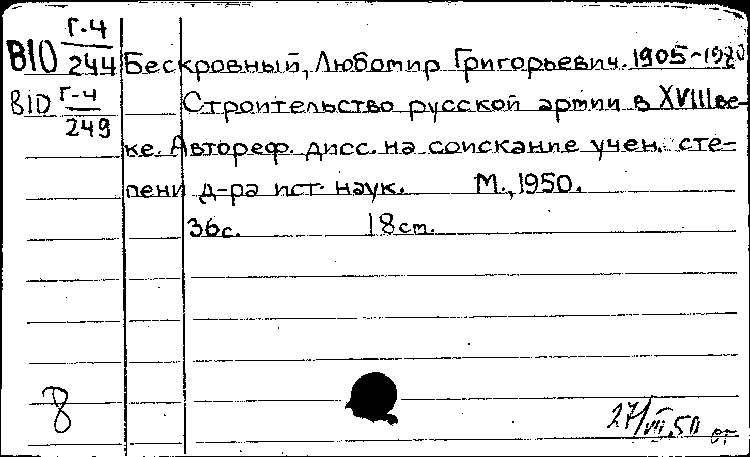 В10 Г-4/244 Бескровный, Любомир Григорьевич. 1905-1980
В10 Г-4/249 Строительство русской армии в XVIII ве-
ке. Автореф. дисс. на соискание учен. сте-
пени д-ра ист. наук. М., 1950.
36с. 18см.
8
27/VII.50